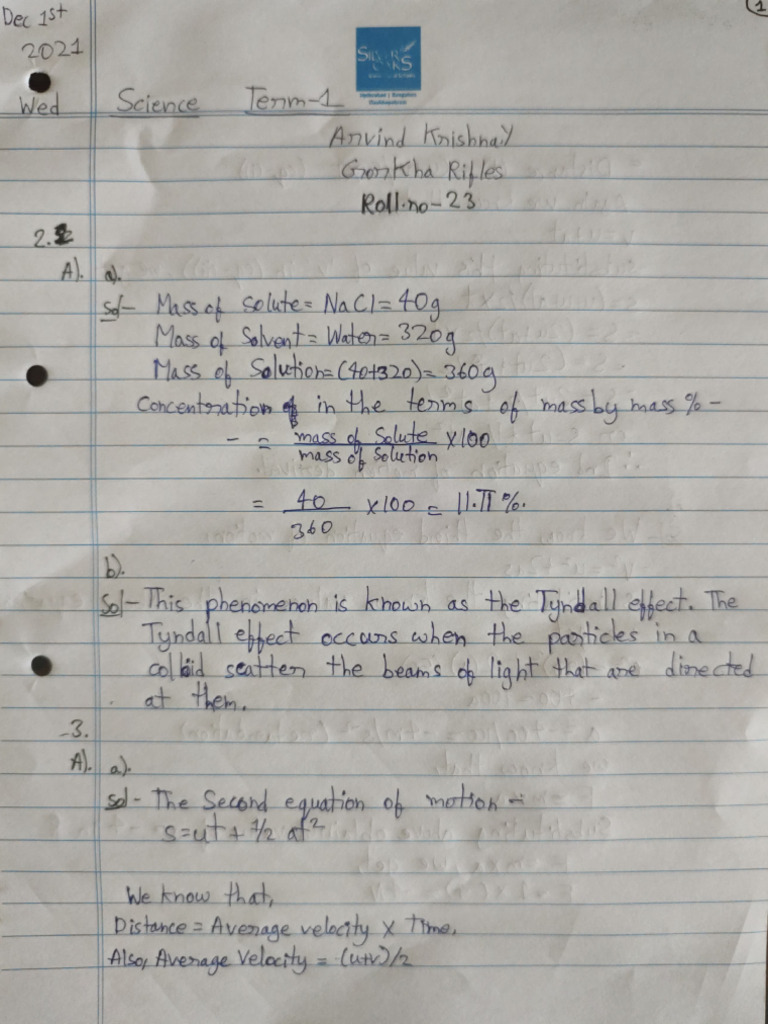 1
Dec 1st
2021
Wed
SILVER OAKS
Hyderabad | Bangalore
Science Term-1
Arvind Krishna.Y
Gorkha Rifles
Roll.no-23
2.
A). a).
Sol- Mass of solute = NaCl = 40g
Mass of Solvent = Water = 320g
Mass of Solution = (40+320) = 360g
Concentration in the terms of mass by mass % -
- = mass of Solute / mass of Solution × 100
= 40 / 360 × 100 = 11.11%.
b).
Sol- This phenomenon is known as the Tyndall effect. The
Tyndall effect occurs when the particles in a
colloid scatter the beams of light that are directed
at them.
3.
A). a).
Sol- The Second equation of motion -
s=ut + 1/2 at²
We know that,
Distance = Average velocity × Time.
Also, Average Velocity = (u+v)/2